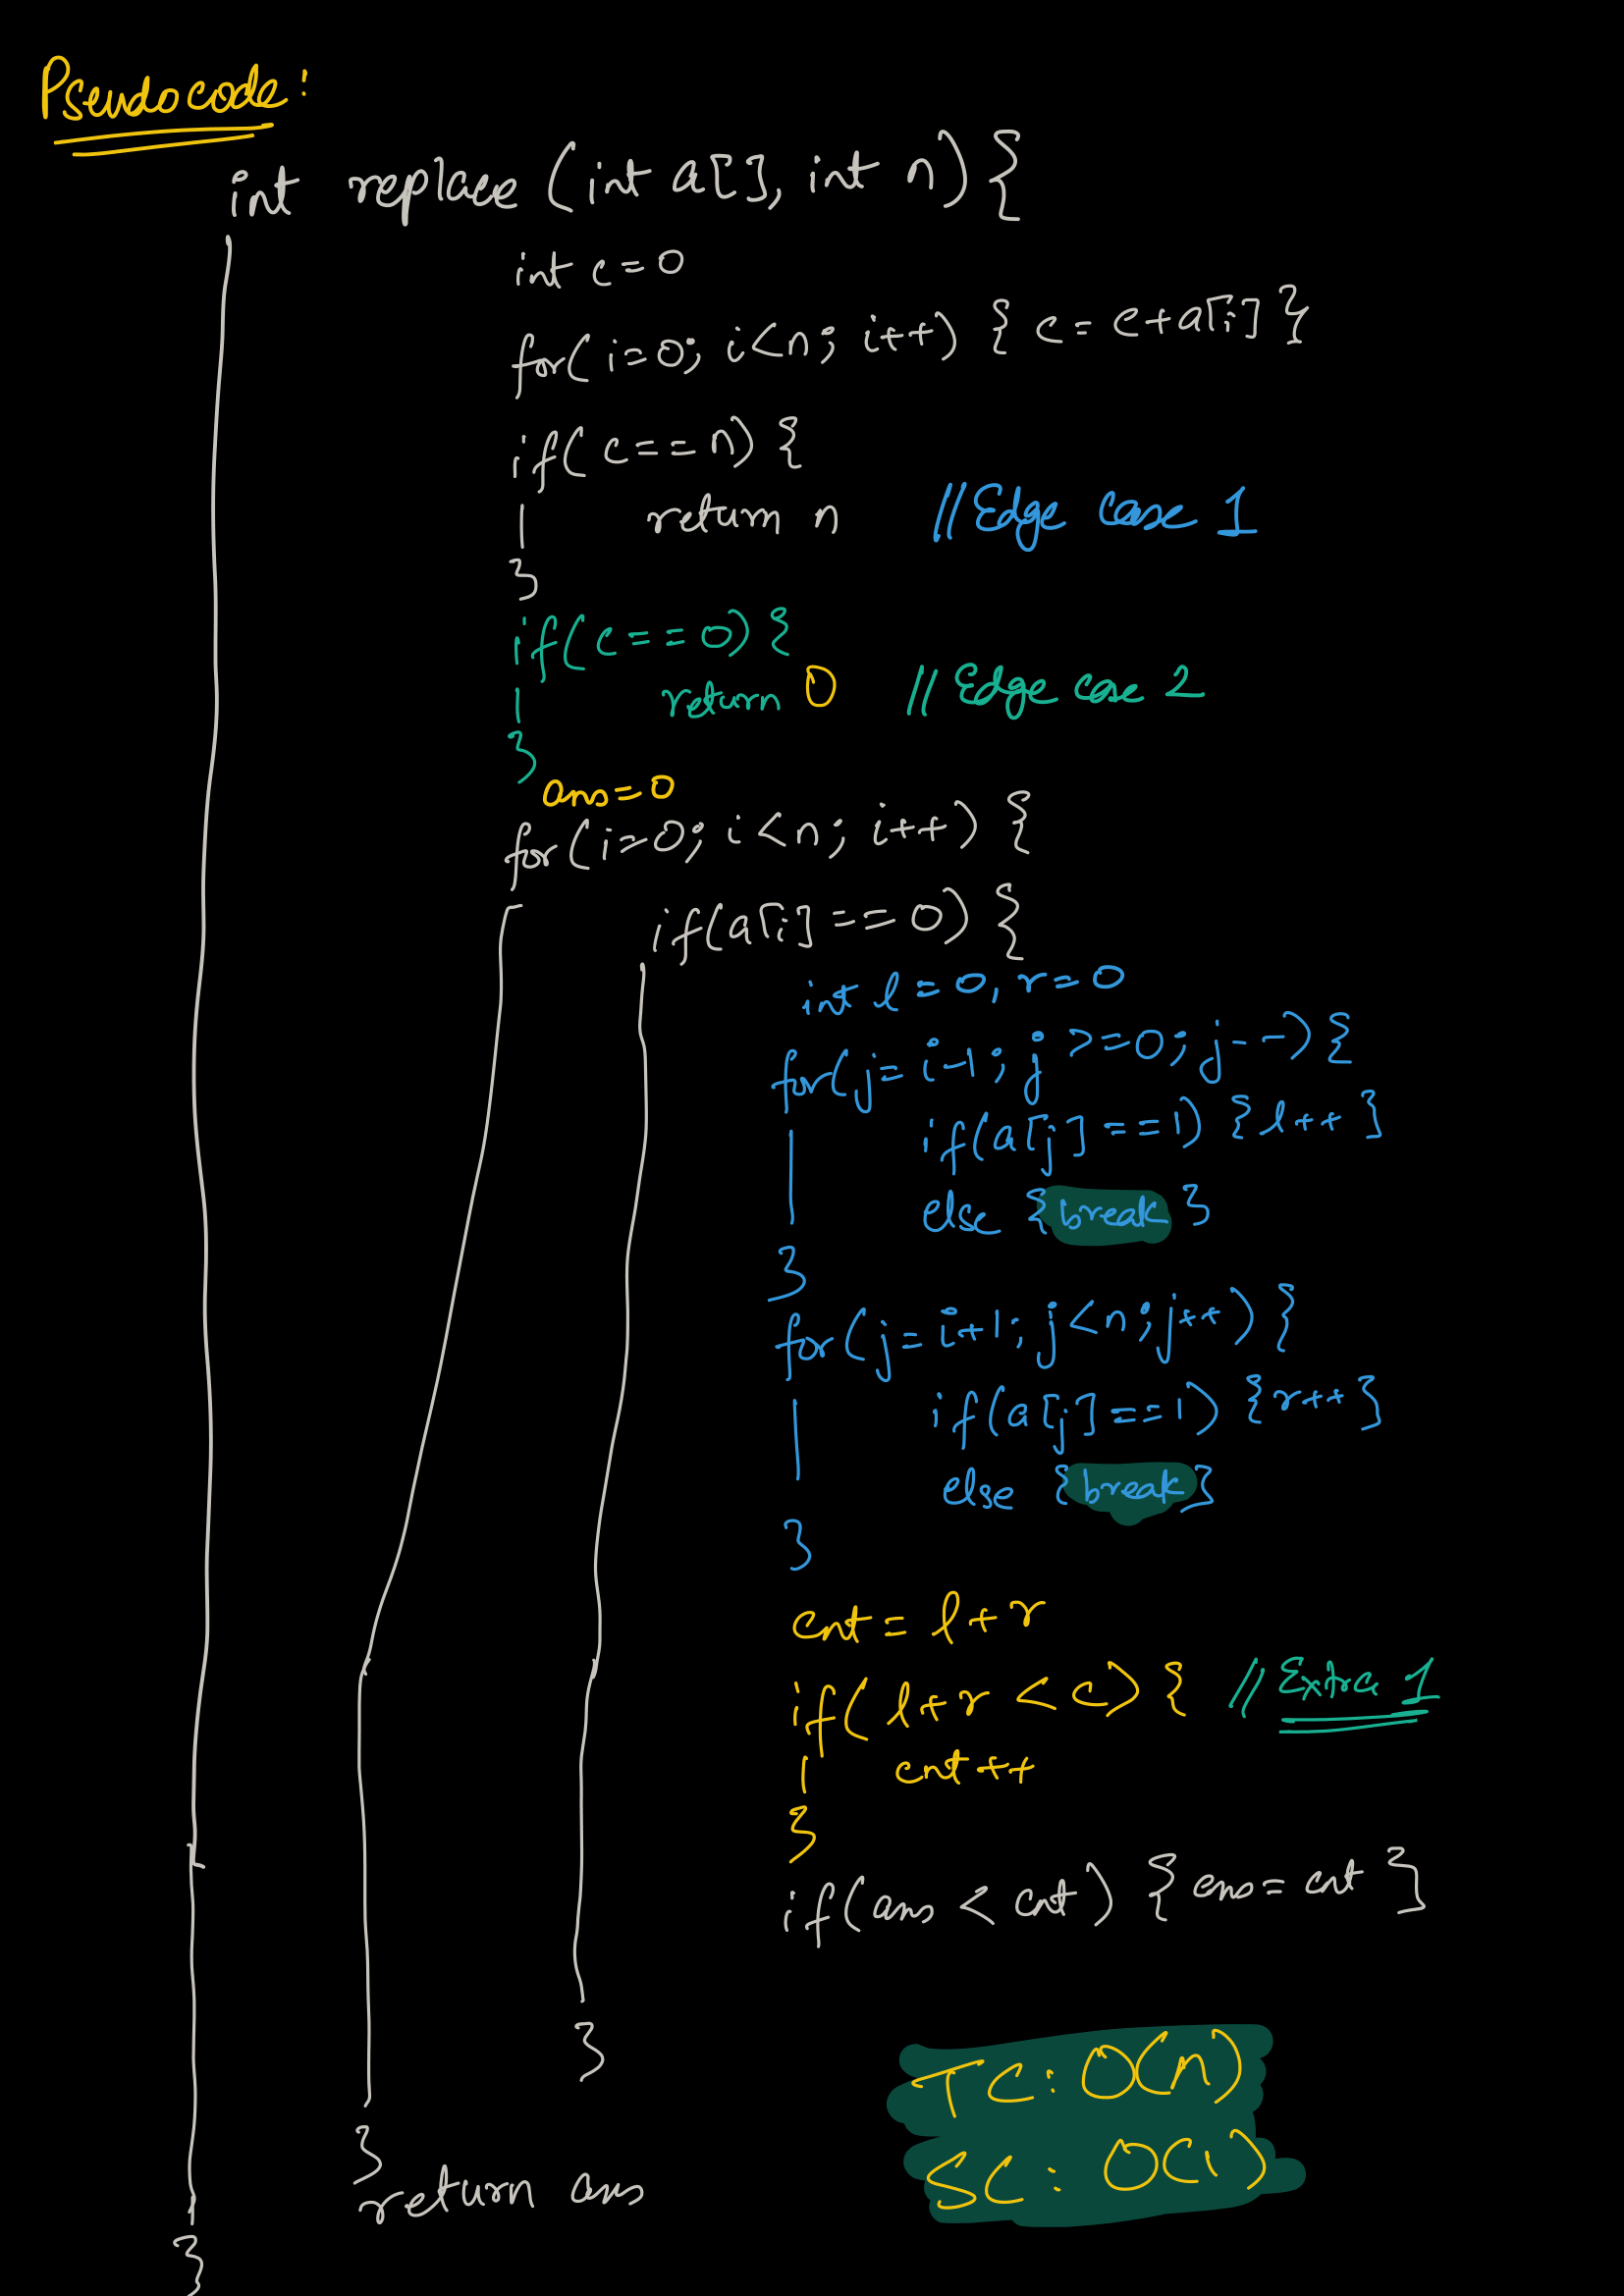 Pseudocode:
int replace (int a[], int n) {
int c=0
for(i=0; i<n; i++) { c= c+a[i] }
if(c==n) {
return n //Edge case 1
}
if(c==0) {
return 0 //Edge case 2
}
ans=0
for(i=0; i<n; i++) {
if(a[i]==0) {
int l=0, r=0
for(j=i-1; j>=0; j--) {
if(a[j]==1) {l++}
else {break}
}
for(j=i+1; j<n; j++) {
if(a[j]==1) {r++}
else {break}
}
cnt= l+r
if(l+r<c) { //Extra 1
cnt++
}
if(ans<cnt) {ans=cnt}
}
}
return ans
}
TC: O(n)
SC: O(1)